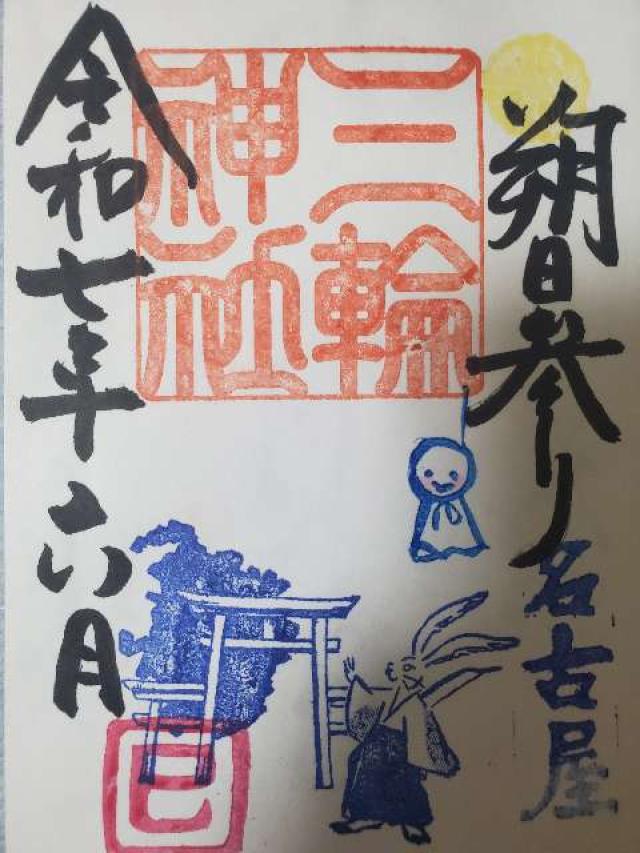 朔日参り
名古屋
三輪
神社
令和七年六月
巳